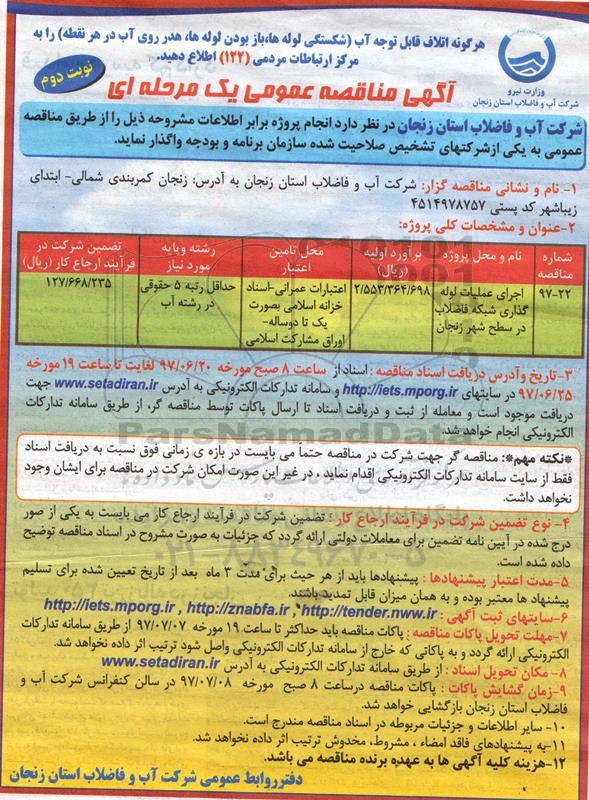 هرگونه اتلاف قابل توجه آب (شکستگی لوله ها،باز بودن لوله ها، هدر روی آب در هر نقطه) را به
مرکز ارتباطات مردمی (۱۲۲) اطلاع دهید.
وزارت نیرو
شرکت آب و فاضلاب استان زنجان
نوبت دوم
آگهی مناقصه عمومی یک مرحله ای
شرکت آب و فاضلاب استان زنجان در نظر دارد انجام پروژه برابر اطلاعات مشروحه ذیل را از طریق مناقصه
عمومی به یکی ازشرکتهای تشخیص صلاحیت شده سازمان برنامه و بودجه واگذار نماید.
۱- نام و نشانی مناقصه گزار: شرکت آب و فاضلاب استان زنجان به آدرس: زنجان کمربندی شمالی- ابتدای
زیباشهر کد پستی ۴۵۱۴۹۷۸۷۵۷
۲-عنوان و مشخصات کلی پروژه:
شماره مناقصه
نام و محل پروژه
برآورد اولیه (ریال)
محل تامین اعتبار
رشته وپایه مورد نیاز
تضمین شرکت در فرآیند ارجاع کار (ریال)
۹۷-۲۲
اجرای عملیات لوله گذاری شبکه فاضلاب در سطح شهر زنجان
۲/۵۵۳/۳۶۴/۶۹۸
اعتبارات عمرانی-اسناد خزانه اسلامی بصورت یک تا دوساله- اوراق مشارکت اسلامی
حداقل رتبه ۵ حقوقی در رشته آب
۱۲۷/۶۶۸/۲۳۵
۳-تاریخ وآدرس دریافت اسناد مناقصه : اسناد از ساعت ۸ صبح مورخه ۹۷/۰۶/۲۰ لغایت تا ساعت ۱۹ مورخه
۹۷/۰۶/۲۵ در سایتهای http://iets.mporg.ir و سامانه تدارکات الکترونیکی به آدرس www.setadiran.ir جهت
دریافت موجود است و معامله از ثبت و دریافت اسناد تا ارسال پاکات توسط مناقصه گر، از طریق سامانه تدارکات
الکترونیکی انجام خواهد شد.
*نکته مهم*: مناقصه گر جهت شرکت در مناقصه حتماً می بایست در بازه ی زمانی فوق نسبت به دریافت اسناد
فقط از سایت سامانه تدارکات الکترونیکی اقدام نماید ، در غیر این صورت امکان شرکت در مناقصه برای ایشان وجود
نخواهد داشت.
۴- نوع تضمین شرکت در فرآیند ارجاع کار : تضمین شرکت در فرآیند ارجاع کار می بایست به یکی از صور
درج شده در آیین نامه تضمین برای معاملات دولتی ارائه گردد که جزئیات به صورت مشروح در اسناد مناقصه توضیح
داده شده است.
۵-مدت اعتبار پیشنهادها : پیشنهادها باید از هر حیث برای مدت ۳ ماه بعد از تاریخ تعیین شده برای تسلیم
پیشنهاد ها معتبر بوده و به همان میزان قابل تمدید باشند.
۶-سایتهای ثبت آگهی : http://iets.mporg.ir , http://znabfa.ir , http://tender.nww.ir
۷-مهلت تحویل پاکات مناقصه : پاکات مناقصه باید حداکثر تا ساعت ۱۹ مورخه ۹۷/۰۷/۰۷ از طریق سامانه تدارکات
الکترونیکی ارائه گردد و به پاکاتی که خارج از سامانه تدارکات الکترونیکی واصل شود ترتیب اثر داده نخواهد شد.
۸- مکان تحویل اسناد : از طریق سامانه تدارکات الکترونیکی به آدرس www.setadiran.ir
۹-زمان گشایش پاکات : پاکات مناقصه درساعت ۸ صبح مورخه ۹۷/۰۷/۰۸ در سالن کنفرانس شرکت آب و
فاضلاب استان زنجان بازگشایی خواهد شد.
۱۰- سایر اطلاعات و جزئیات مربوطه در اسناد مناقصه مندرج است.
۱۱-به پیشنهادهای فاقد امضاء ، مشروط، مخدوش ترتیب اثر داده نخواهد شد.
۱۲-هزینه کلیه آگهی ها به عهده برنده مناقصه می باشد.
دفتر روابط عمومی شرکت آب و فاضلاب استان زنجان